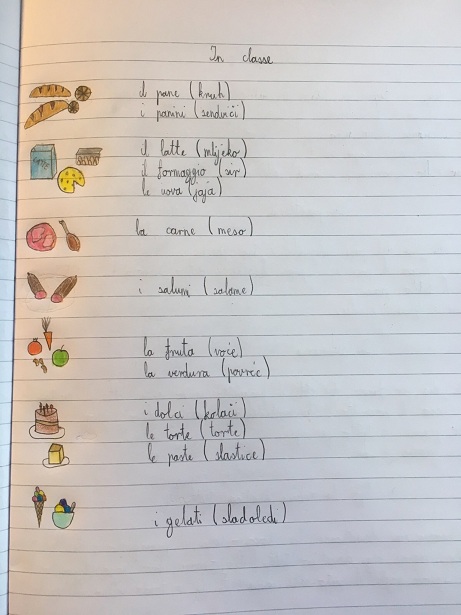 In classe
il pane (kruh)
i panini (sendviči)
il latte (mlijeko)
il formaggio (sir)
le uova (jaja)
la carne (meso)
i salumi (salame)
la fruta (voće)
la verdura (povrće)
i dolci (kolači)
le torte (torte)
le paste (slastice)
i gelati (sladoledi)